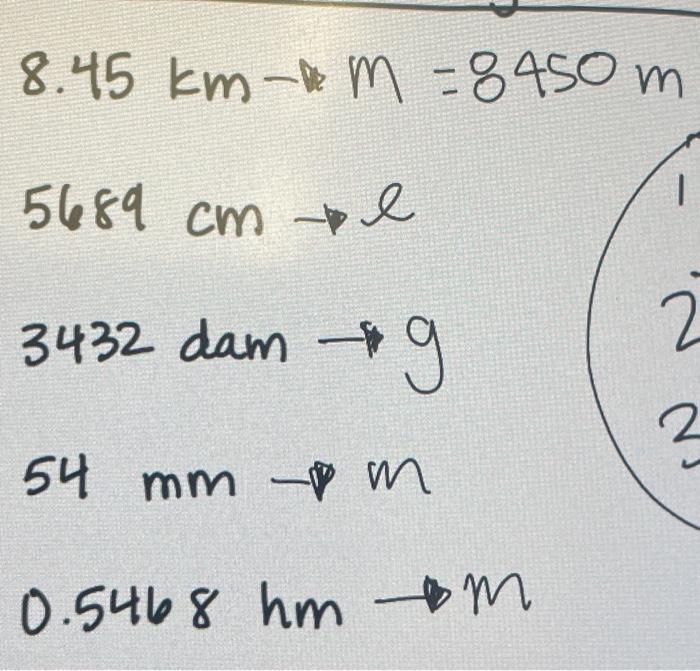 8.45 km → m = 8450 m
1
5689 cm → l
2
3432 dam → g
3
54 mm → m
0.5468 hm → m